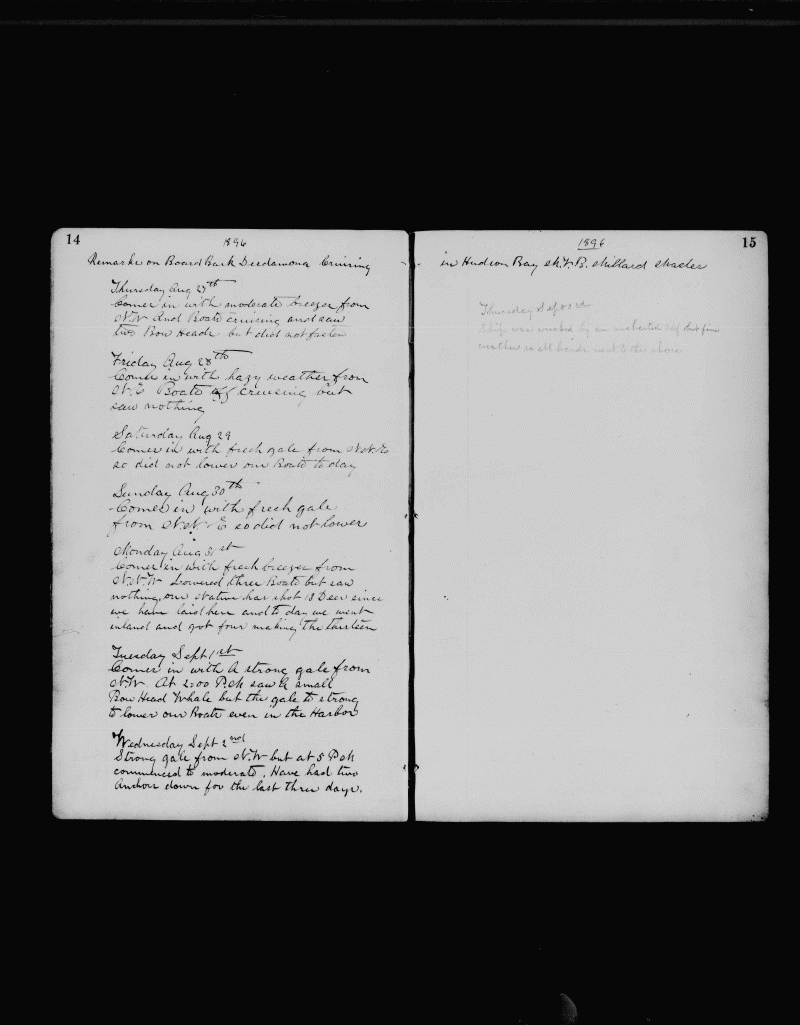 14
1896
Remarks on Board Bark Desdamona Cruising
Thursday Aug 27th
Comes in with moderate breezes from
N.W. And Boats cruising and saw
two Bow Heads but did not fasten
Friday Aug 28th
Comes in with hazy weather from
N.E Boats off cruising but
saw nothing
Saturday Aug 29
Comes in with fresh gale from N.N.E
so did not lower our Boats to day
Sunday Aug 30th
Comes in with fresh gale
from N.N.E so did not lower
Monday Aug 31st
Comes in with fresh breezes from
N.N.W Lowered three Boats but saw
nothing, our native has shot 13 Deer since
we have laid here and to day we went
inland and got four making the thirteen
Tuesday Sept 1st
Comes in with A strong gale from
N.W. At 2=00 P.M saw A small
Bow Head Whale but the gale to strong
to lower our Boats even in the Harbor
Wednesday Sept 2nd
Strong gale from N.W but at 5 P.M
commenced to moderate. Have had two
Anchors down for the last three days.
1896
15
in Hudson Bay M.V.B. Millard Master
Thursday Sept 3rd
Ship was wrecked by an uncharted reef but fine
weather so all hands went to the shore